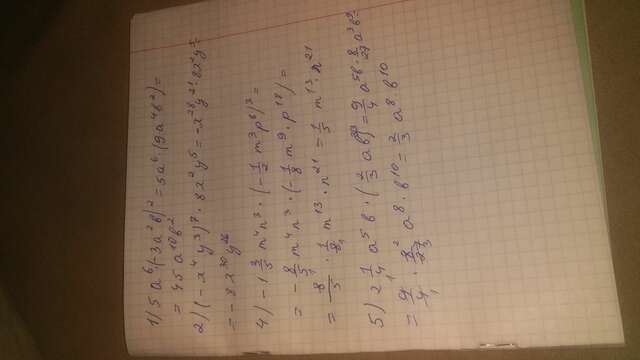 1) 5a⁶(-3a²b)² = 5a⁶·(9a⁴b²) =
= 45a¹⁰b²
2) (-x⁴y³)⁷·8x²y⁵ = -x²⁸y²¹·8x²y⁵ =
= -8x³⁰y²⁶
4) -1 3/5 m⁴n³·(-1/2 m³p⁶)³ =
= -8/5 m⁴n³·(-1/8 m⁹·p¹⁸) =
= 8/5·1/8 m¹³·n²¹ = 1/5 m¹³·n²¹
5) 2 1/4 a⁵b·(2/3 ab³)³ = 9/4 a⁵b·8/27 a³b⁹ =
= 9/4·8/27 a⁸·b¹⁰ = 2/3 a⁸·b¹⁰